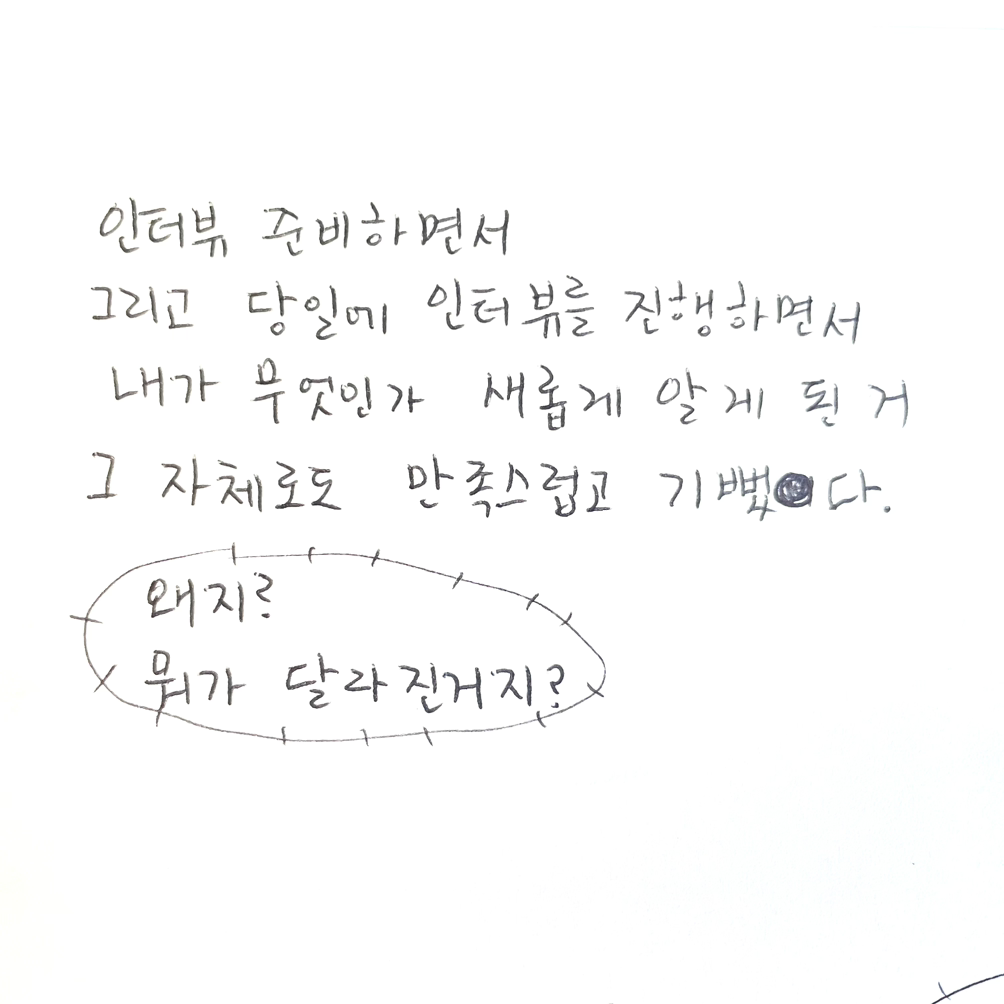 인터뷰 준비하면서
그리고 당일에 인터뷰를 진행하면서
내가 무엇인가 새롭게 알게 된 거
그 자체로도 만족스럽고 기뻤다.
왜지?
뭐가 달라진거지?